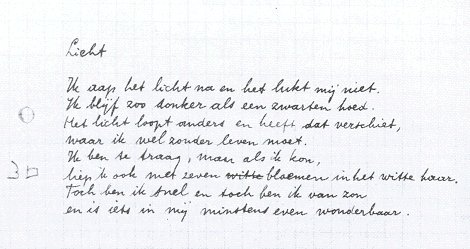 Licht
Ik aap het licht na en het lukt mij niet.
Ik blijf zoo donker als een zwarten hoed.
Het licht loopt anders en heeft dat verschiet,
waar ik wel zonder leven moet.
Ik ben te traag, maar als ik kon,
liep ik ook met zeven witte bloemen in het witte haar.
Toch ben ik snel en toch ben ik van zon
en is iets in mij minstens even wonderbaar.